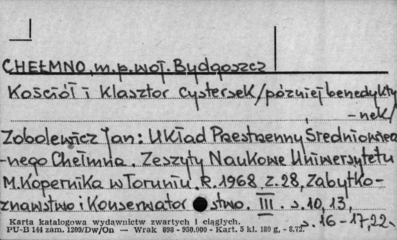 CHEŁMNO, m.p.woj. Bydgoszcz
Kościół i Klasztor cystersek/później benedykty
-nek/
Zobolewicz Jan: Układ Przestrzenny Średniowiecz
-nego Chełmna. Zeszyty Naukowe Uniwersytetu
M.Kopernika w Toruniu. R. 1968, z.28, Zabytko-
znawstwo i Konserwator stwo. III. s. 10, 13,
s. 16-17, 22.
Karta katalogowa wydawnictw zwartych i ciągłych.
PU-B 144 zam. 1209/Dw/On — Wrak 898 - 950.000 - Kart. 5 kl. 180 g. - 8.72.